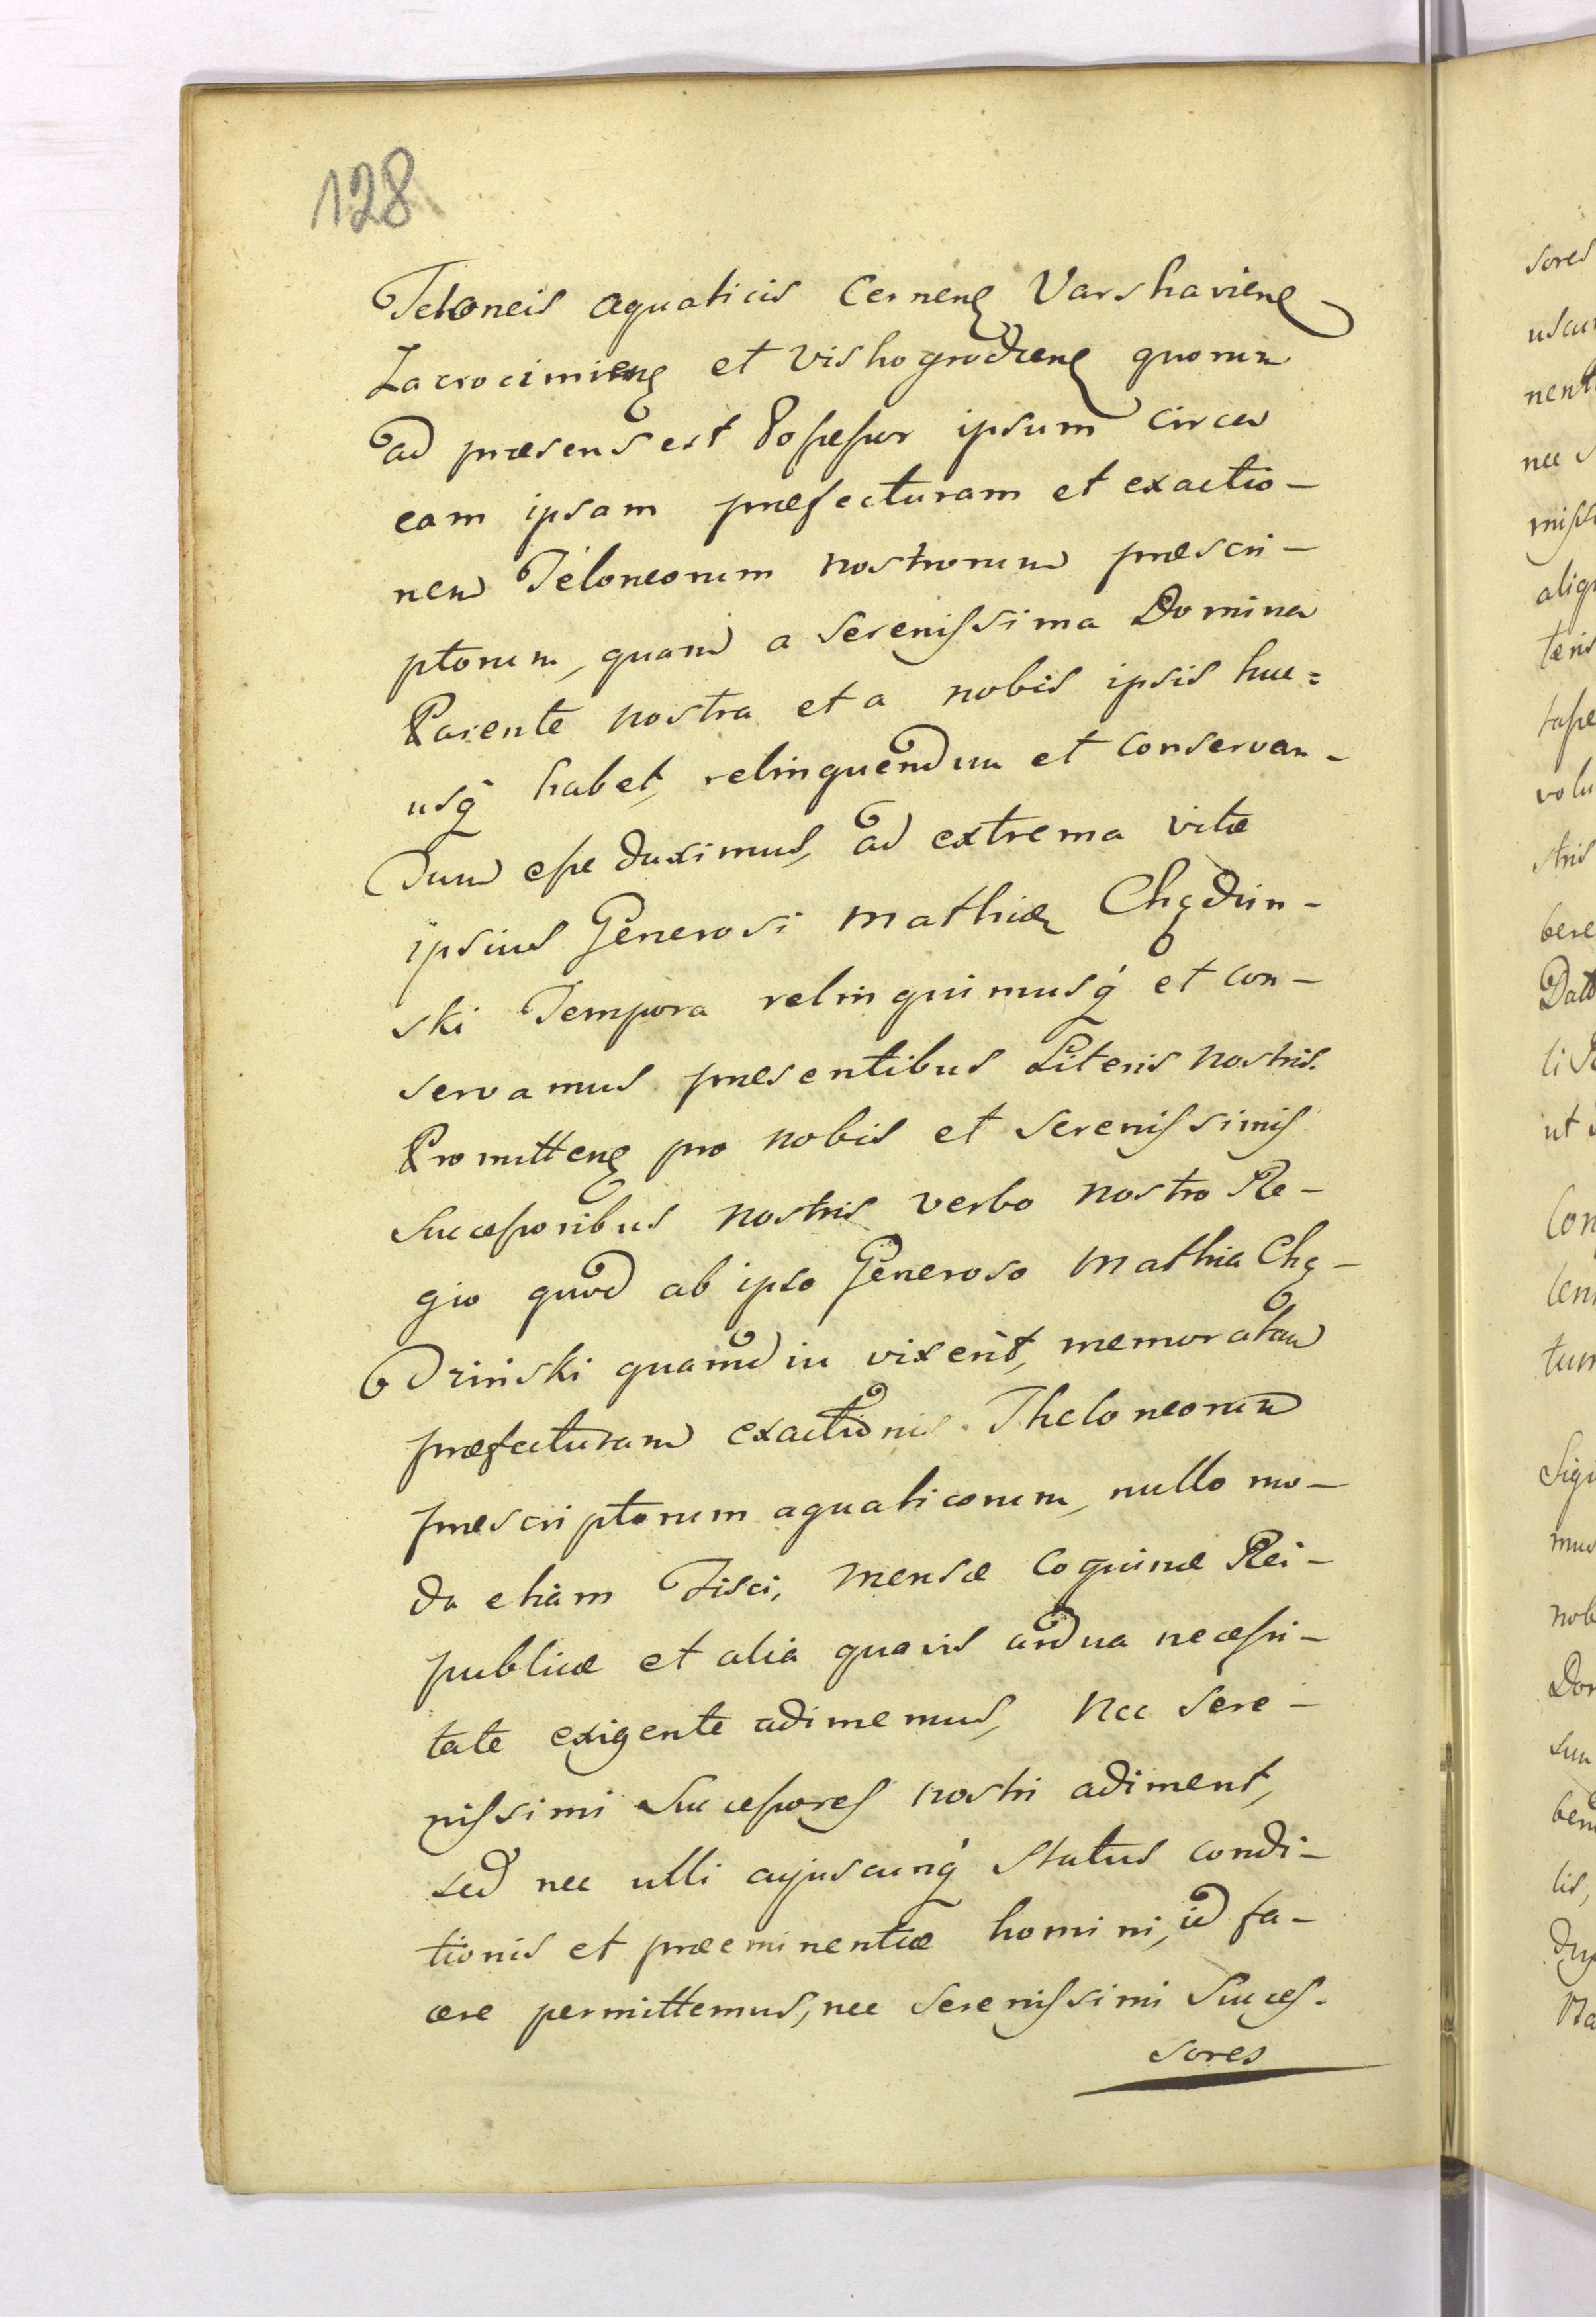 128
Teloneis aquaticis Cernenς Varshavienς
Zacrocimienς et Vishogrodienς quorum
ad præsens est Possessor ipsum circa
eam ipsam præfecturam et exactio-
nem Teloneorum nostrorum præscri-
ptorum, quam a Serenissima Domina
Parente nostra et a nobis ipsis huc=
usq́ habet, relinquendum et conservan-
dum esse duximus, ad extrema vitæ
ipsius Generosi Mathiæ Chądzin-
ski Tempora relinquimusq́ et con-
servamus præsentibus Literis nostris.
Promittenς pro nobis et Serenissimis
Successoribus nostris verbo nostro Re-
gio quod ab ipso Generoso Mathia Chą-
dzinski quamdiu vixerit, memoratam
præfecturam exactionis Theloneorum
præscriptorum aquaticorum, nullo mo-
do etiam Fisci, Mensæ Coquinæ Rei-
publicæ et alia quavis ardua necessi-
tate exigente adimemus, nec Sere-
nissimi Successores nostri adiment,
sed nec ulli cujuscunq́ status condi-
tionis et præeminentiæ homini, id fa-
cere permittemus, nec Serenissimi Succes-
sores